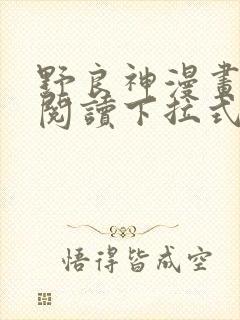 野良神漫畫
閱讀下拉式
悟得皆成空